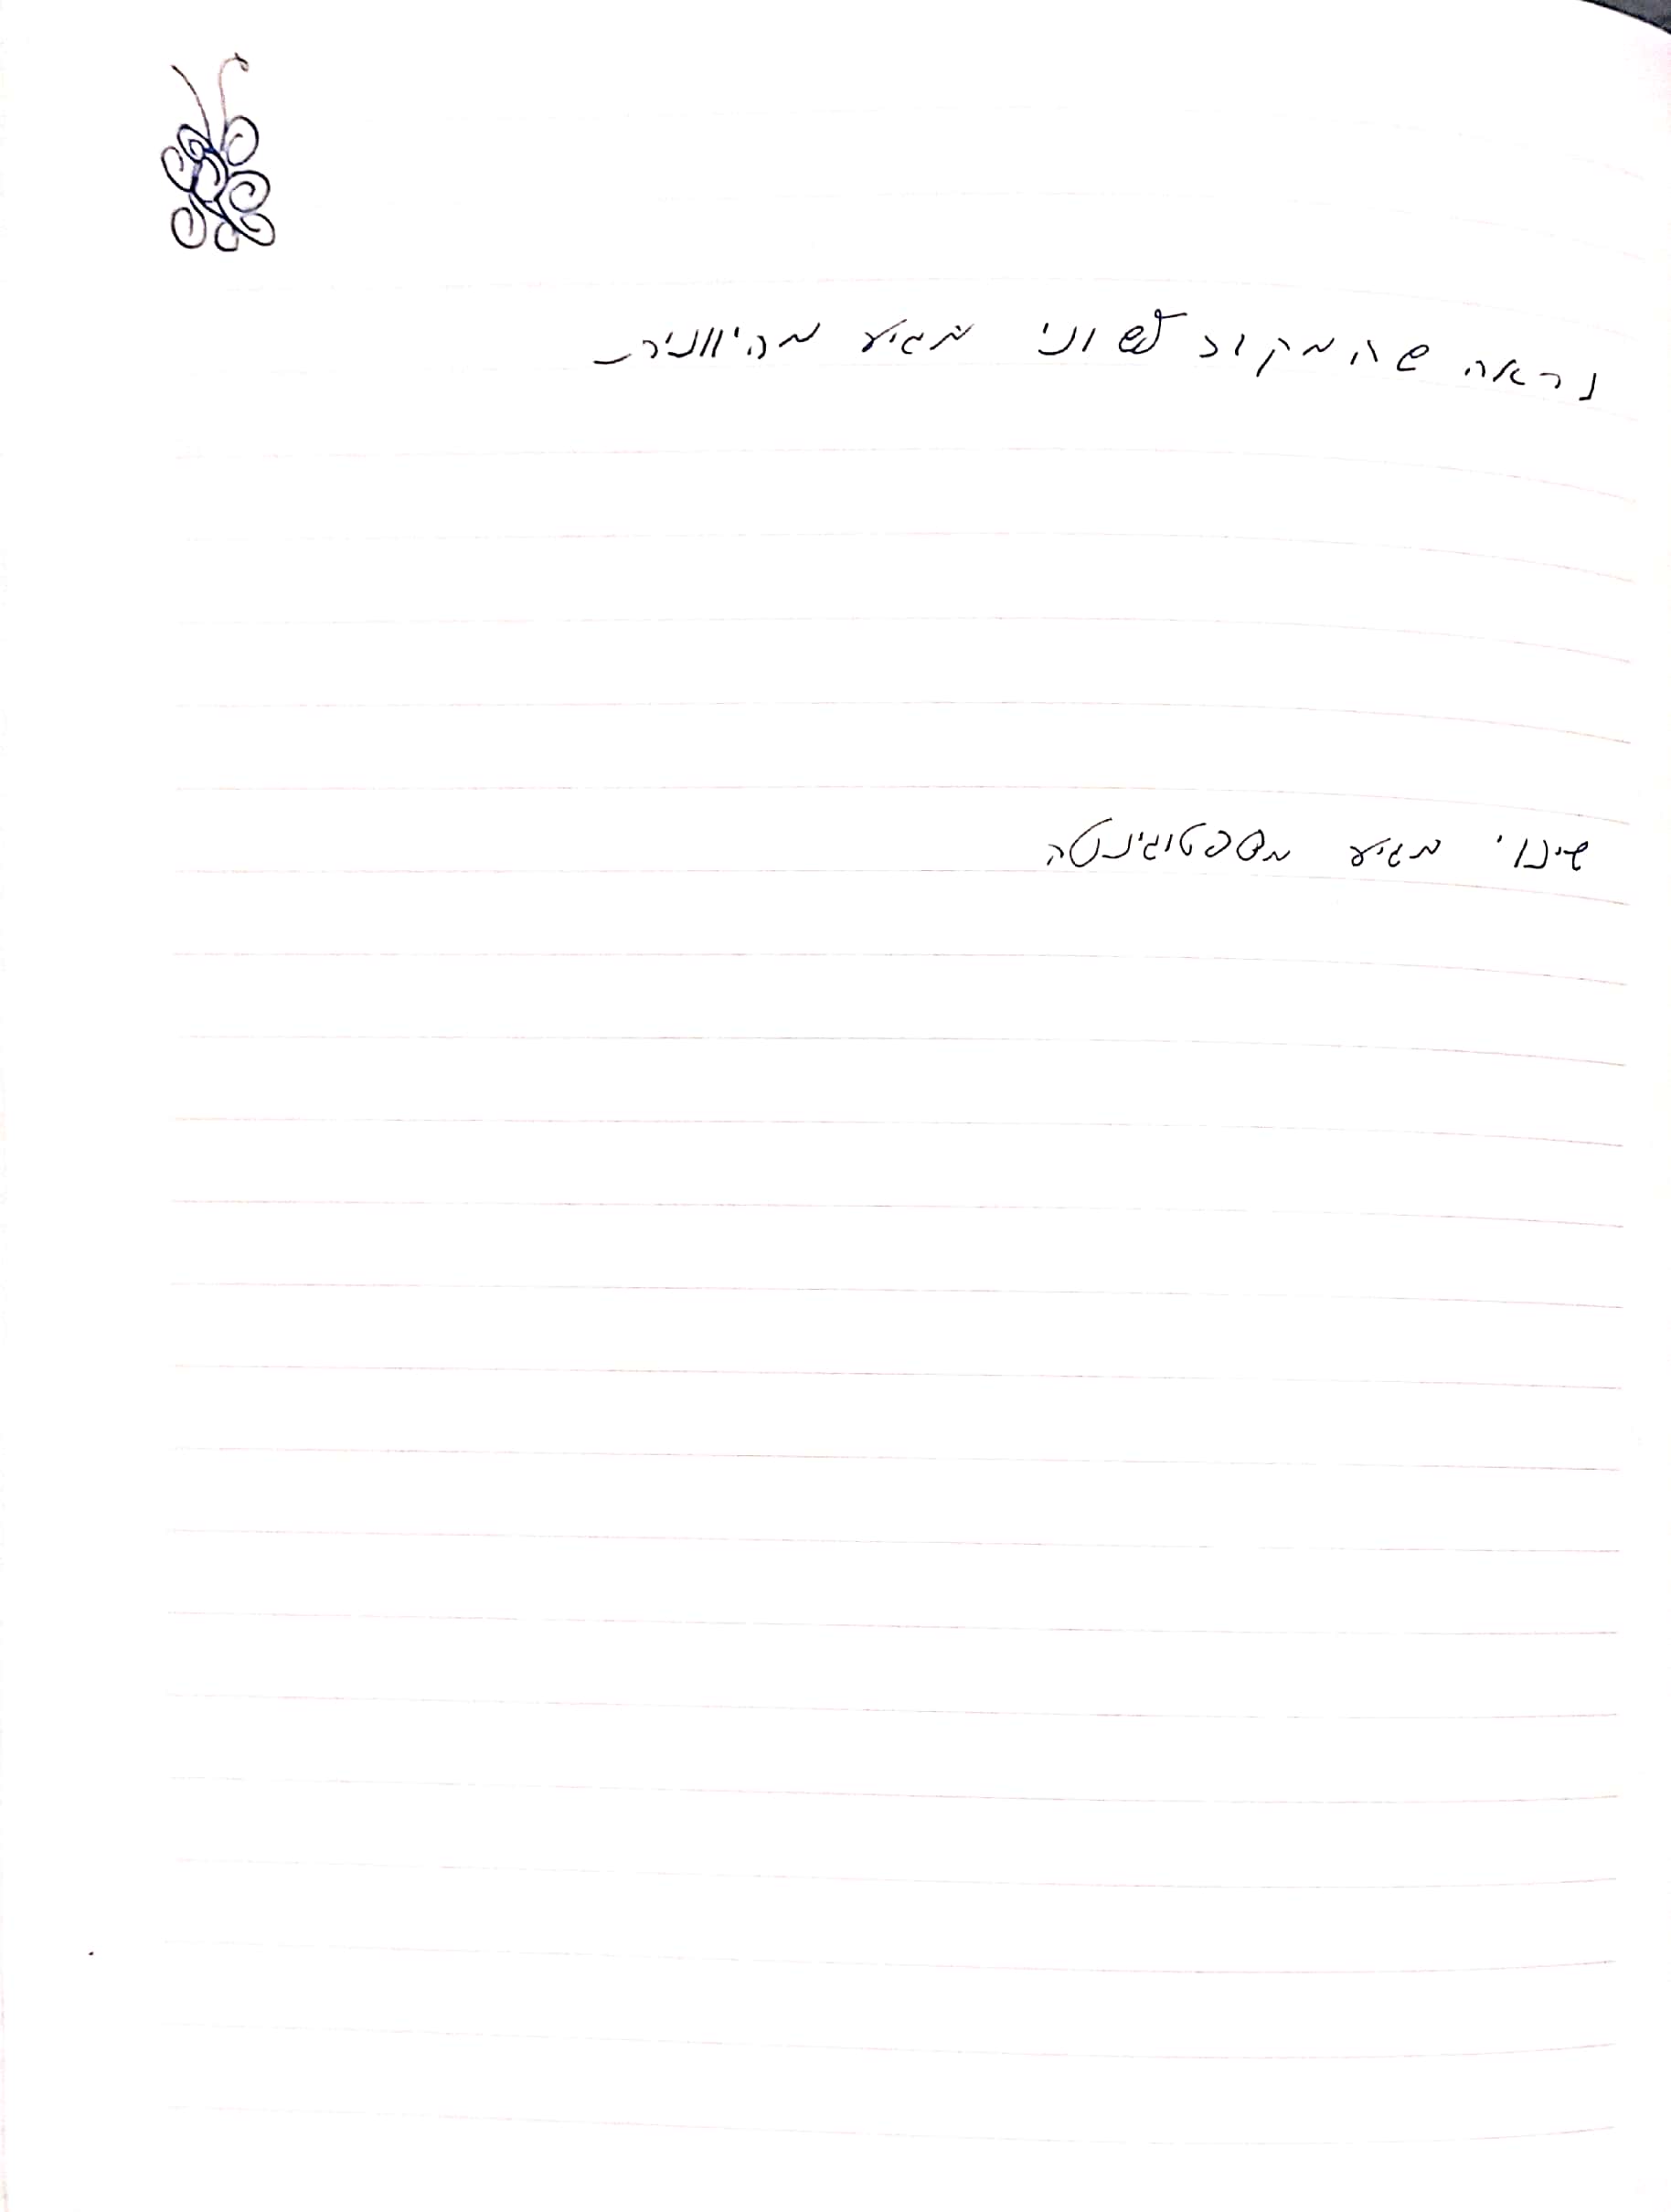 נראה שהמקור לשוני מגיע מהיוונית
שינוי מגיע מספטוגינטה